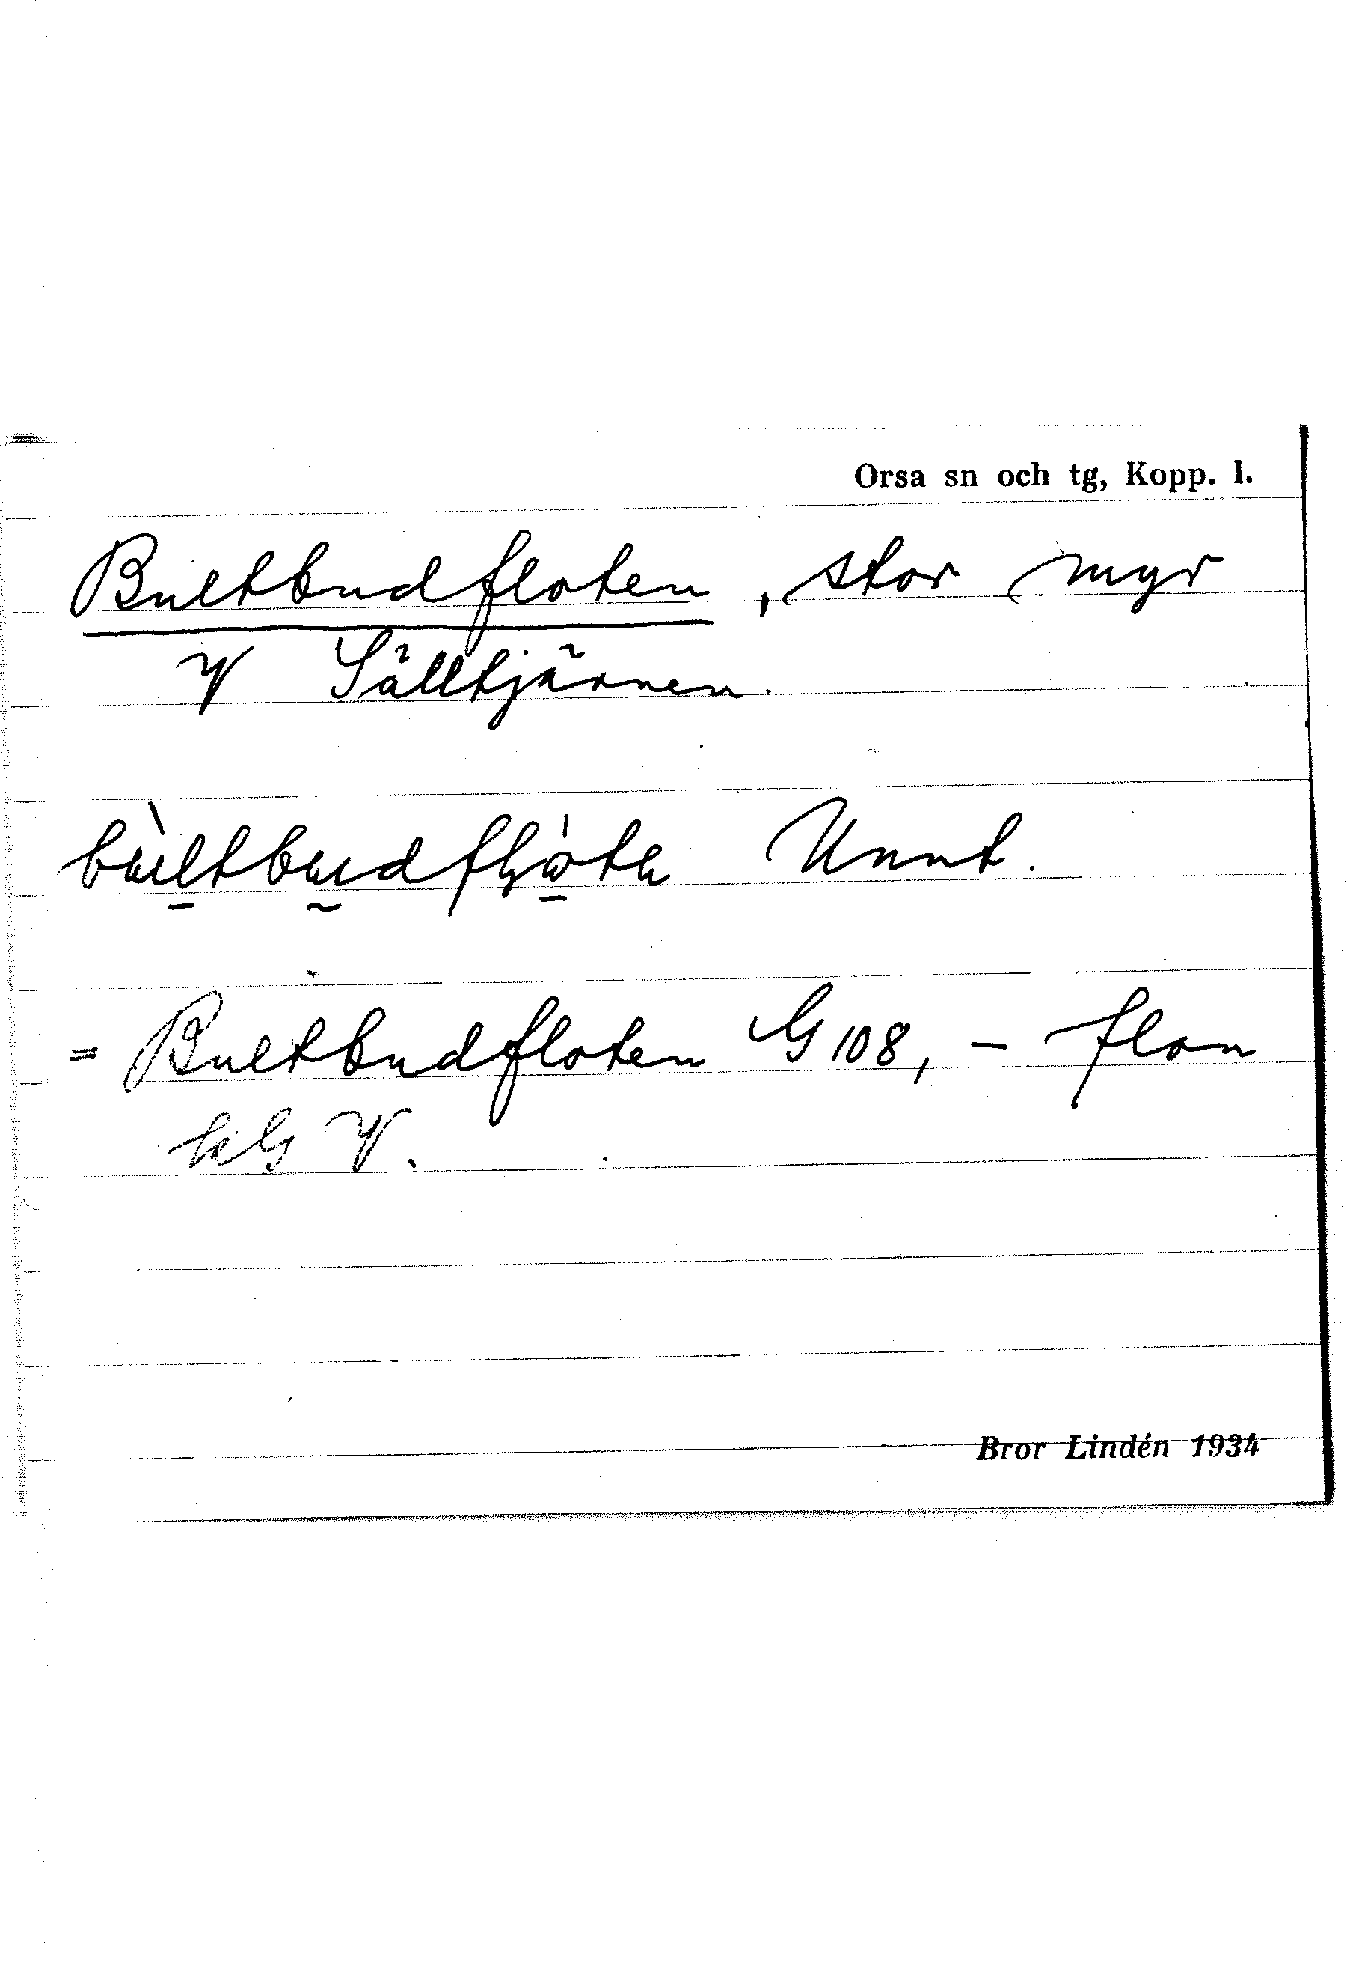 Orsa sn och tg, Kopp. l.
Bultbudfloten, stor myr
V Sälltjärnen.
Unnt.
= Bultbudfloten G 108, – flon
V.
Bror Lindén 1934